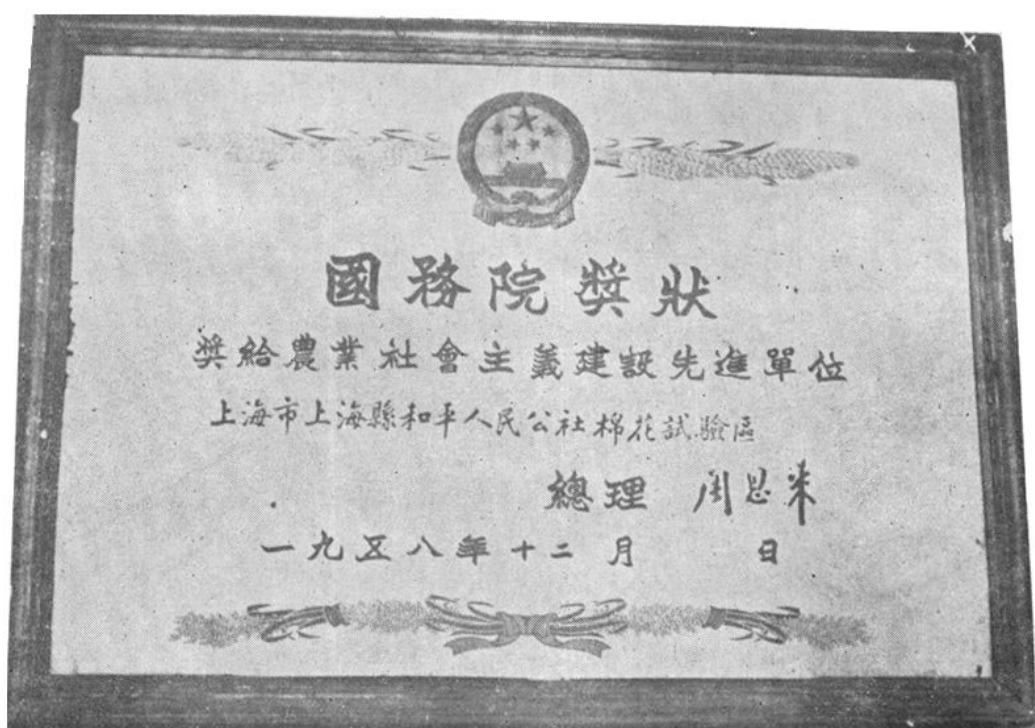 國務院獎狀
獎給農業社會主義建設先進單位
上海市上海縣和平人民公社棉花試驗區
總理 周恩來
一九五八年十二月 日